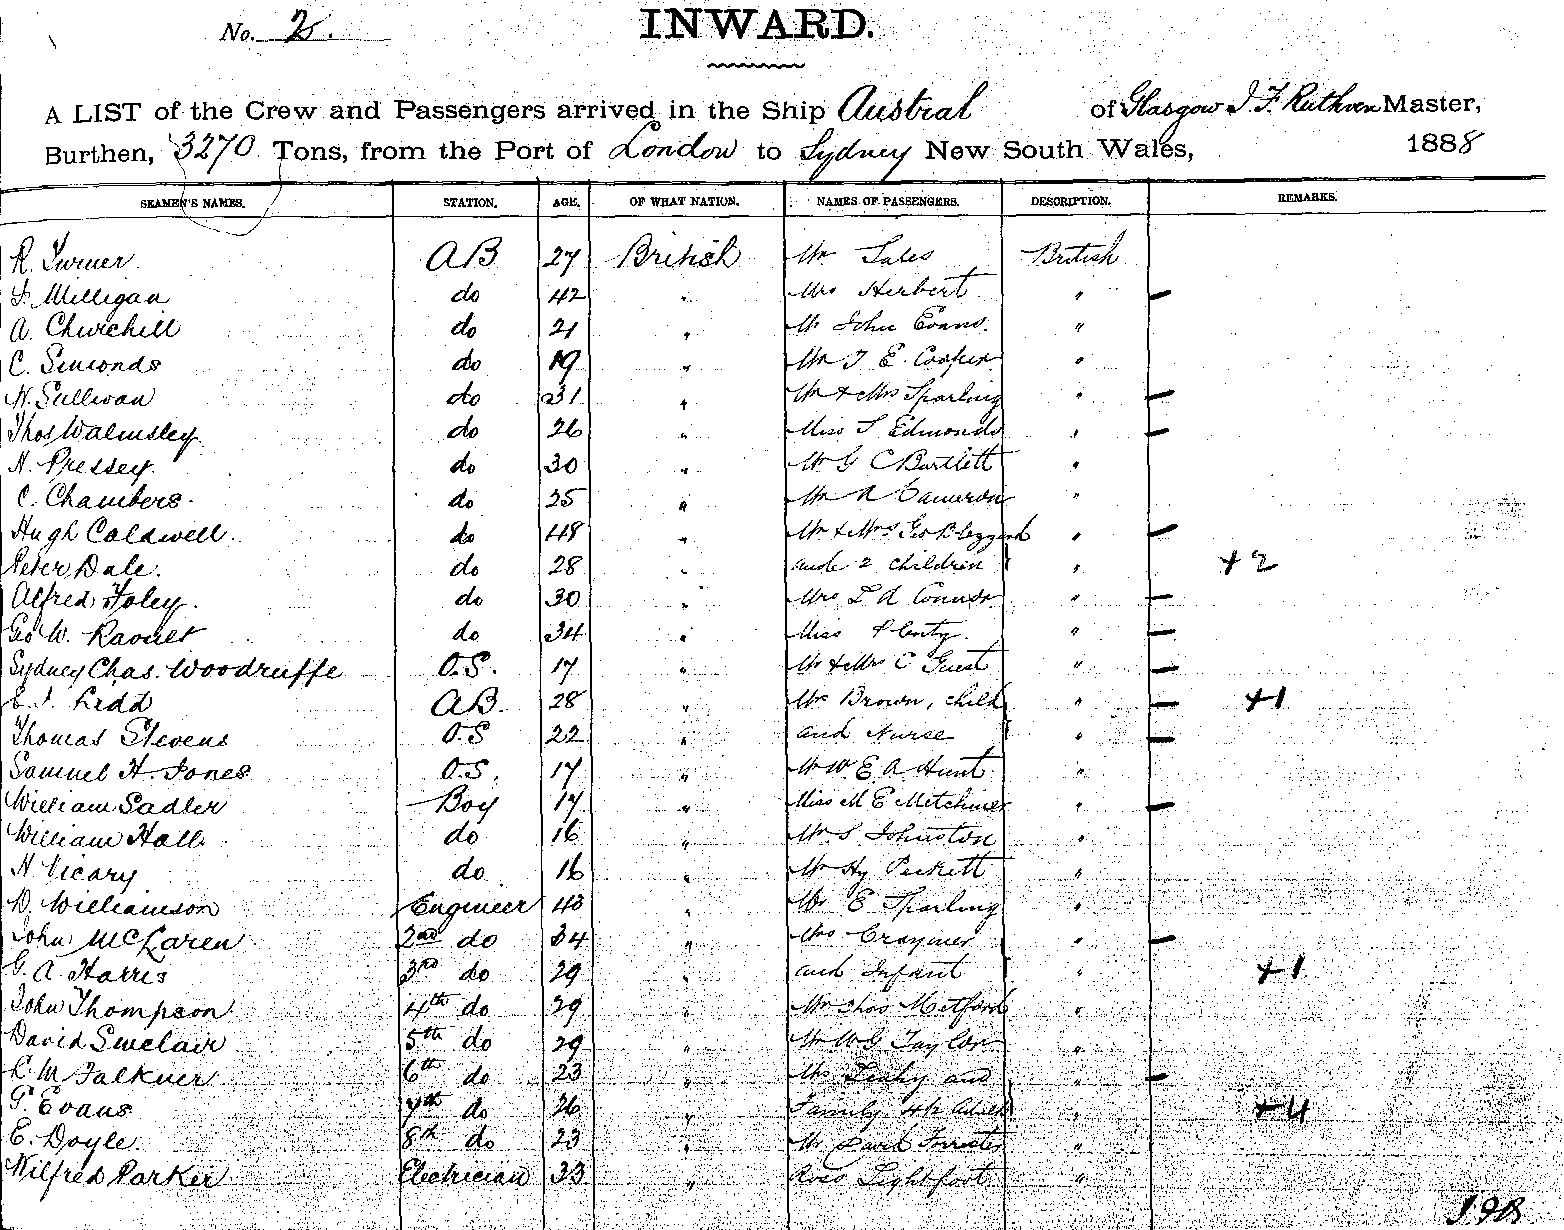 No. 2.
INWARD.
A LIST of the Crew and Passengers arrived in the Ship Austral of Glasgow J. F. Ruthven Master,
Burthen, 3270 Tons, from the Port of London to Sydney New South Wales, 1888
SEAMEN'S NAMES. STATION. AGE. OF WHAT NATION. NAMES OF PASSENGERS. DESCRIPTION. REMARKS.
R. Turner AB 27 British Mr Sales British
Milligan do 42 " Mrs Herbert " –
A. Churchill do 21 " Mr John Evans. "
C. Simonds do 19 " Mr T E. Cooper "
H. Sullivan do 31 " Mr & Mrs Sparling " –
Thos Walmsley do 26 " Miss S Edmonds " –
H. Pressey. do 30 " Mr G C Bartlett "
C. Chambers. do 25 " Mr A Cameron "
Hugh Caldwell. do 48 " Mr & Mrs Geo " –
Peter Dale. do 28 " and 2 children " +2
Alfred Foley. do 30 " Mrs L A Connor " –
Geo W. do 34 " Miss Plenty. " –
Sydney Chas. Woodruffe O.S. 17 " Mr & Mrs C Guest " –
AB. 28 " Mrs Brown, child " – +1
Thomas Stevens O.S 22 " and Nurse " –
Samuel H. Jones O.S. 17 " Mr W. E. A Hunt "
William Sadler Boy 17 " Miss M E " –
William Hall. do 16 " Mr S. Johnston "
H Vicary do 16 " Mr Hy Puckett "
D. Williamson Engineer 43 " E Sparling "
John McLaren 2nd do 34 " Mrs Craymer " –
G. A Harris 3rd do 29 " and Infant " +1
John Thompson 4th do 29 " Mr Thos Metford "
David Sinclair 5th do 29 " Mr W G Taylor "
Falkner 6th do 23 " Mrs Leahy and " –
Evans 7th do 26 " Family 4 " +4
E. Doyle. 8th do 23 " Mr David Forrester "
Wilfred Parker Electrician 33 " Ross Lightfoot "
198